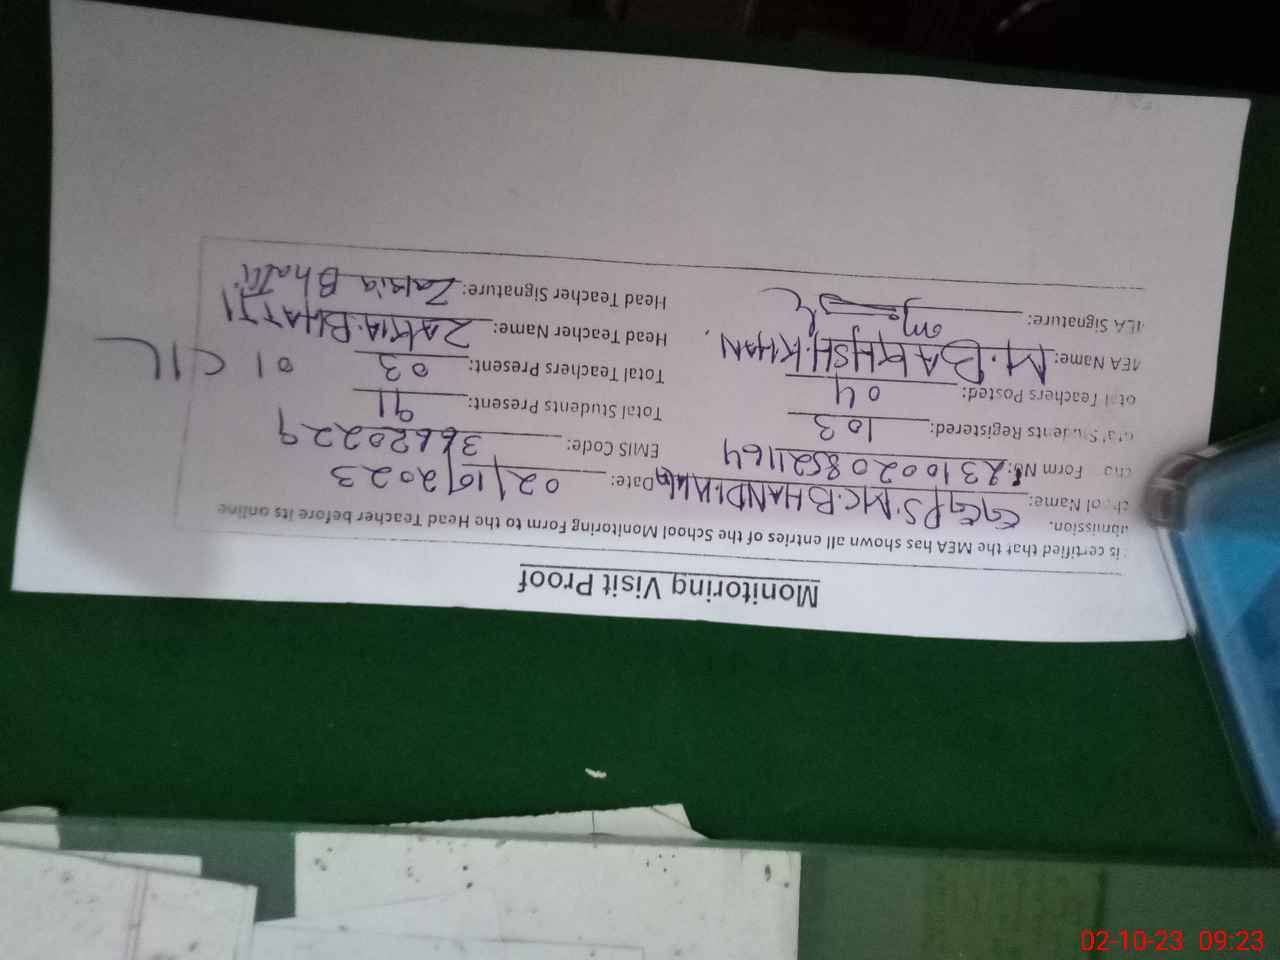 Monitoring Visit Proof
is certified that the MEA has shown all entries of the School Monitoring Form to the Head Teacher before its online
bmission.
chool Name: GGPS.MC.BHANDIWALA Date: 02/10/2023
Form No: 23100208521164 EMIS Code: 36620229
otal Students Registered: 103 Total Students Present: 91
otal Teachers Posted: 04 Total Teachers Present: 03 01 C/L
MEA Name: M.BAKHSH.KHAN. Head Teacher Name: ZAKIA.BHATTI
MEA Signature: Head Teacher Signature: Zakia Bhatti
02-10-23 09:23